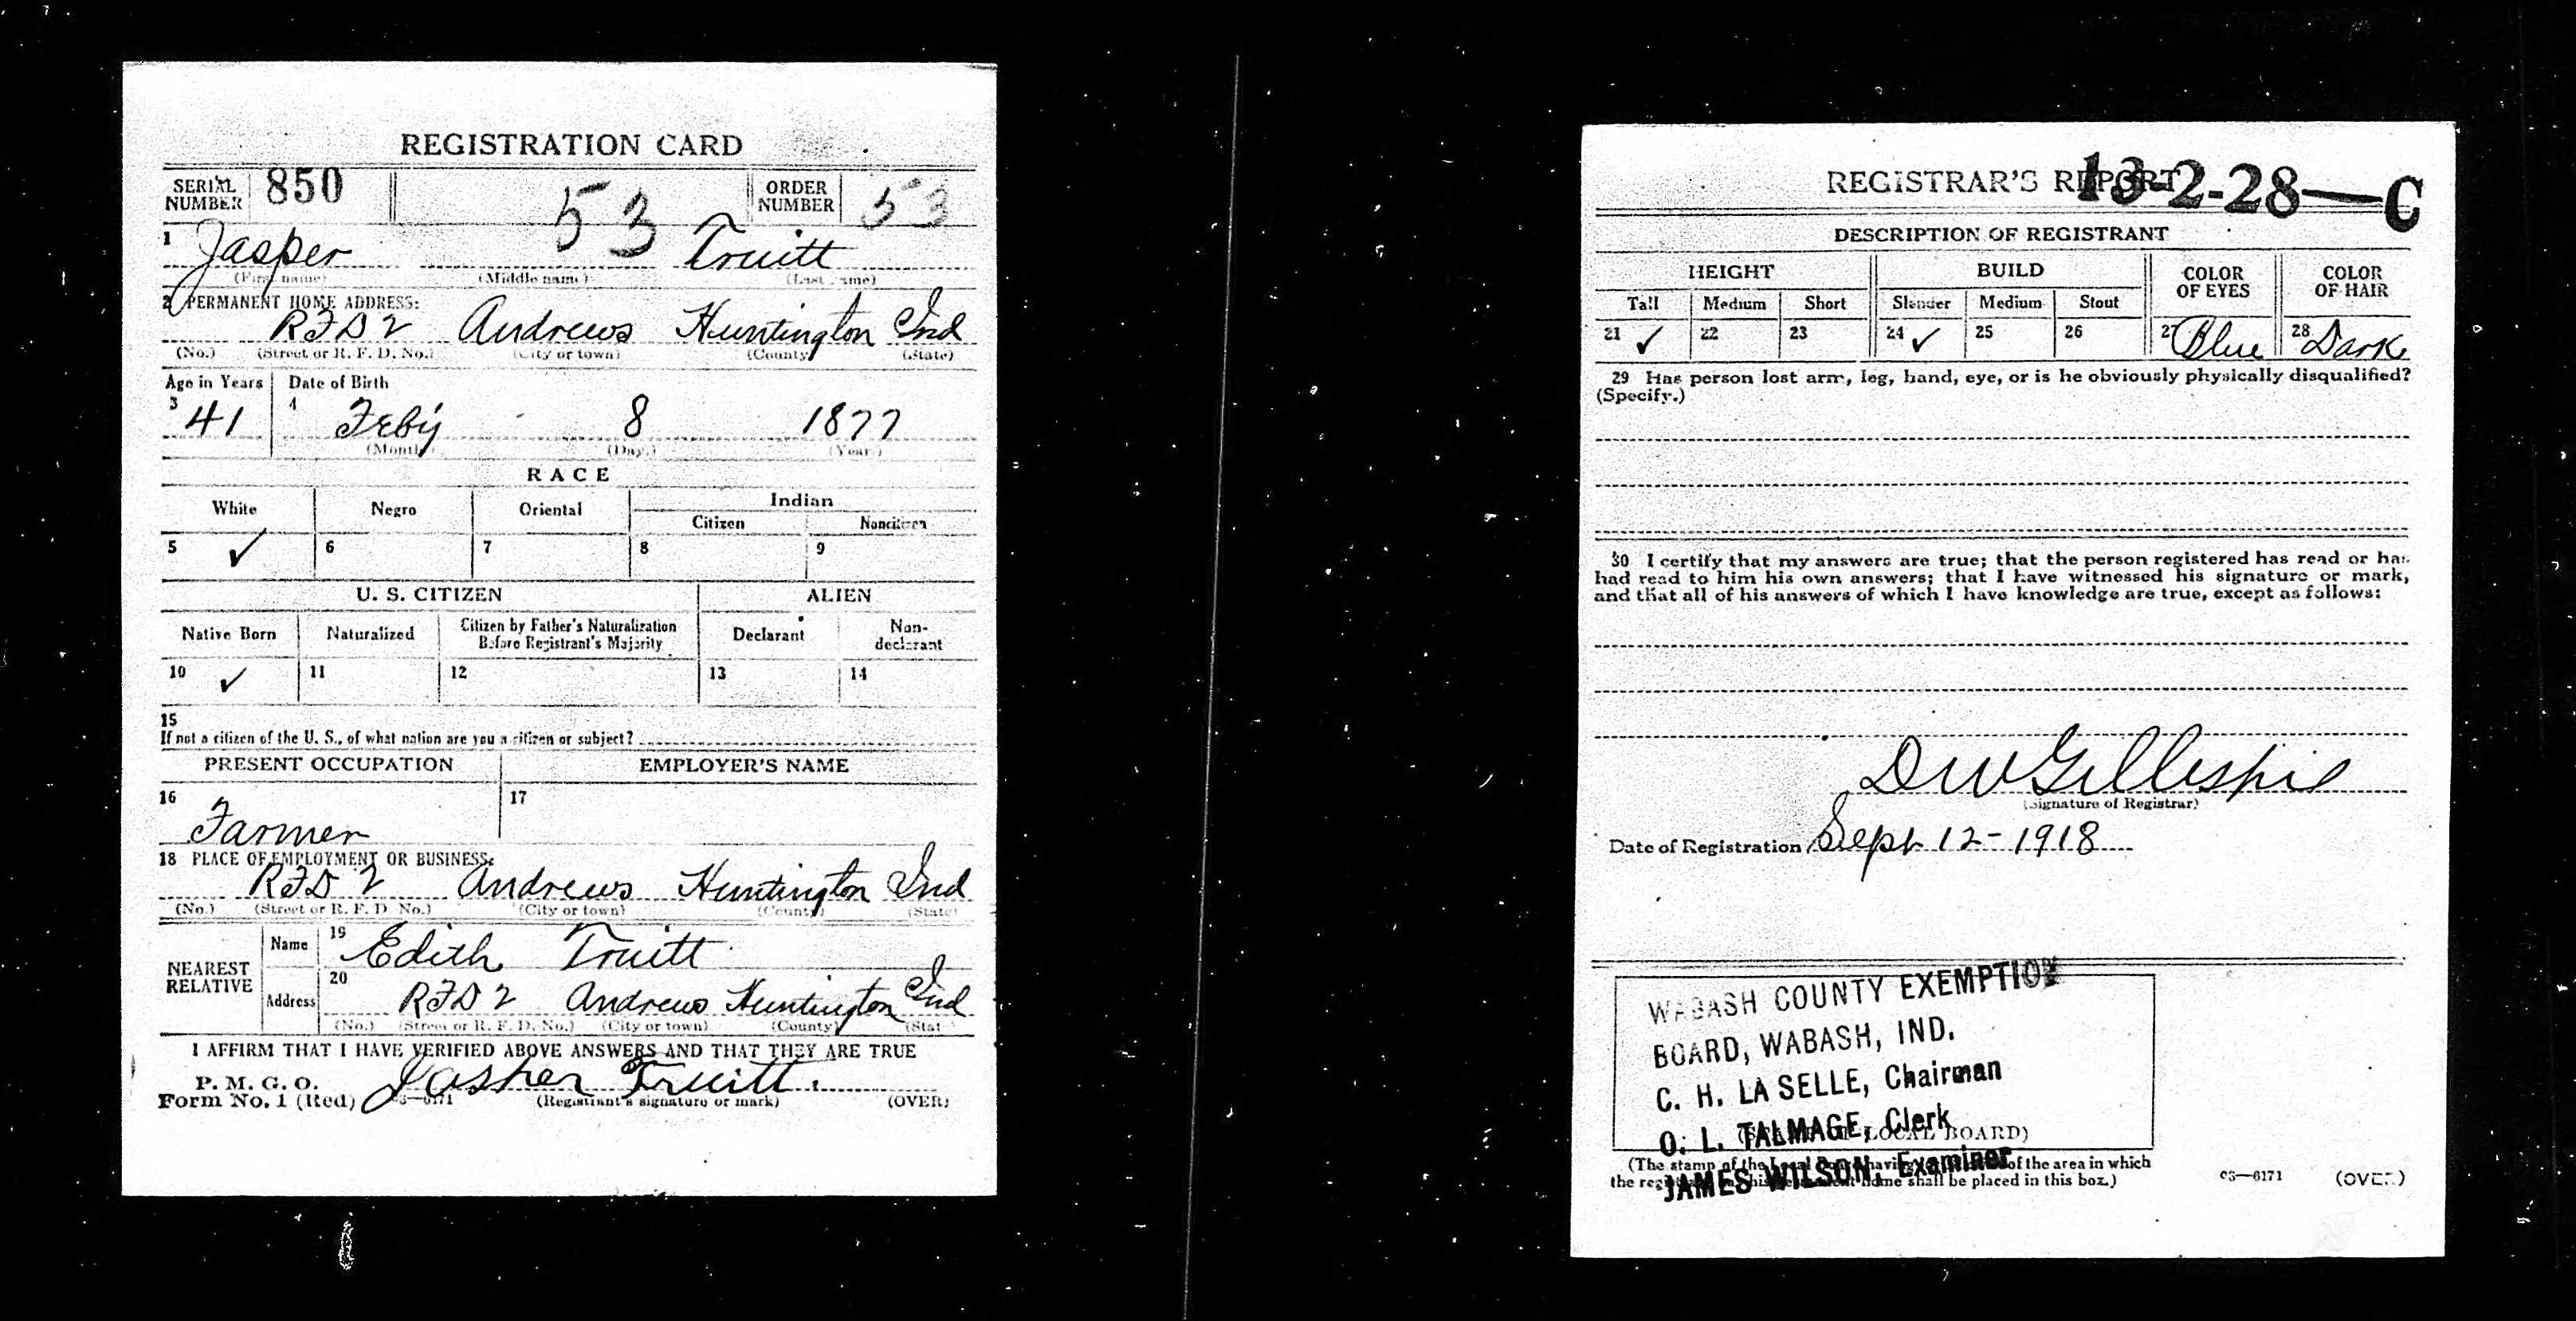 REGISTRATION CARD
SERIAL NUMBER 850 53 ORDER NUMBER 53
1 Jasper Truitt
(First name) (Middle name) (Last name)
2 PERMANENT HOME ADDRESS:
RFD 2 Andrews Huntington Ind
(No.) (Street or R. F. D. No.) (City or town) (County) (State)
Age in Years Date of Birth
3 41 4 Feby 8 1877
(Month) (Day.) (Year)
RACE
White Negro Oriental Indian
Citizen Noncitizen
5 ✓ 6 7 8 9
U. S. CITIZEN ALIEN
Native Born Naturalized Citizen by Father's Naturalization Before Registrant's Majority Declarant Non-declarant
10 ✓ 11 12 13 14
15
If not a citizen of the U. S., of what nation are you a citizen or subject?
PRESENT OCCUPATION EMPLOYER'S NAME
16 Farmer 17
18 PLACE OF EMPLOYMENT OR BUSINESS:
RFD 2 Andrews Huntington Ind
(No.) (Street or R. F. D. No.) (City or town) (County) (State)
NEAREST RELATIVE Name 19 Edith Truitt
Address 20 RFD 2 Andrews Huntington Ind
(No.) (Street or R. F. D. No.) (City or town) (County) (Stat
I AFFIRM THAT I HAVE VERIFIED ABOVE ANSWERS AND THAT THEY ARE TRUE
P. M. G. O.
Form No. 1 (Red) 03—6171 Jasper Truitt.
(Registrant's signature or mark) (OVER)
REGISTRAR'S REPORT 13-2-28—C
DESCRIPTION OF REGISTRANT
HEIGHT BUILD COLOR OF EYES COLOR OF HAIR
Tall Medium Short Slender Medium Stout
21 ✓ 22 23 24 ✓ 25 26 27 Blue 28 Dark
29 Has person lost arm, leg, hand, eye, or is he obviously physically disqualified?
(Specify.)
30 I certify that my answers are true; that the person registered has read or has
had read to him his own answers; that I have witnessed his signature or mark,
and that all of his answers of which I have knowledge are true, except as follows:
D W Gillespie
(Signature of Registrar)
Date of Registration Sept 12-1918
WABASH COUNTY EXEMPTION
BOARD, WABASH, IND.
C. H. LA SELLE, Chairman
O. L. TALMAGE, Clerk
LOCAL BOARD)
JAMES WILSON, Examiner
(The stamp of the Local Board having of the area in which
the home shall be placed in this box.)
03—6171 (OVER)